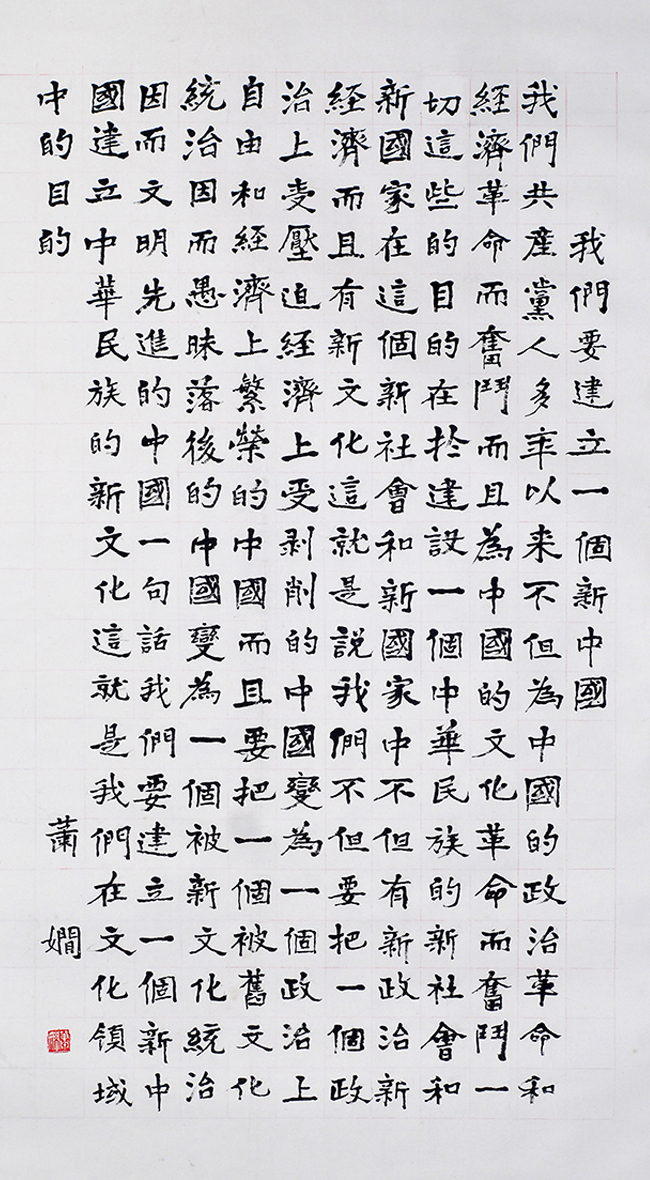 我們要建立一個新中國
我們共產黨人多年以来不但為中國的政治革命和
經濟革命而奮鬥而且為中國的文化革命而奮鬥一
切這些的目的在於建設一個中華民族的新社會和
新國家在這個新社會和新國家中不但有新政治新
經濟而且有新文化這就是說我們不但要把一個政
治上受壓迫經濟上受剥削的中國變為一個政治上
自由和經濟上繁榮的中國而且要把一個被舊文化
統治因而愚昧落後的中國變為一個被新文化統治
因而文明先進的中國一句話我們要建立一個新中
國建立中華民族的新文化這就是我們在文化領域
中的目的
蕭嫻